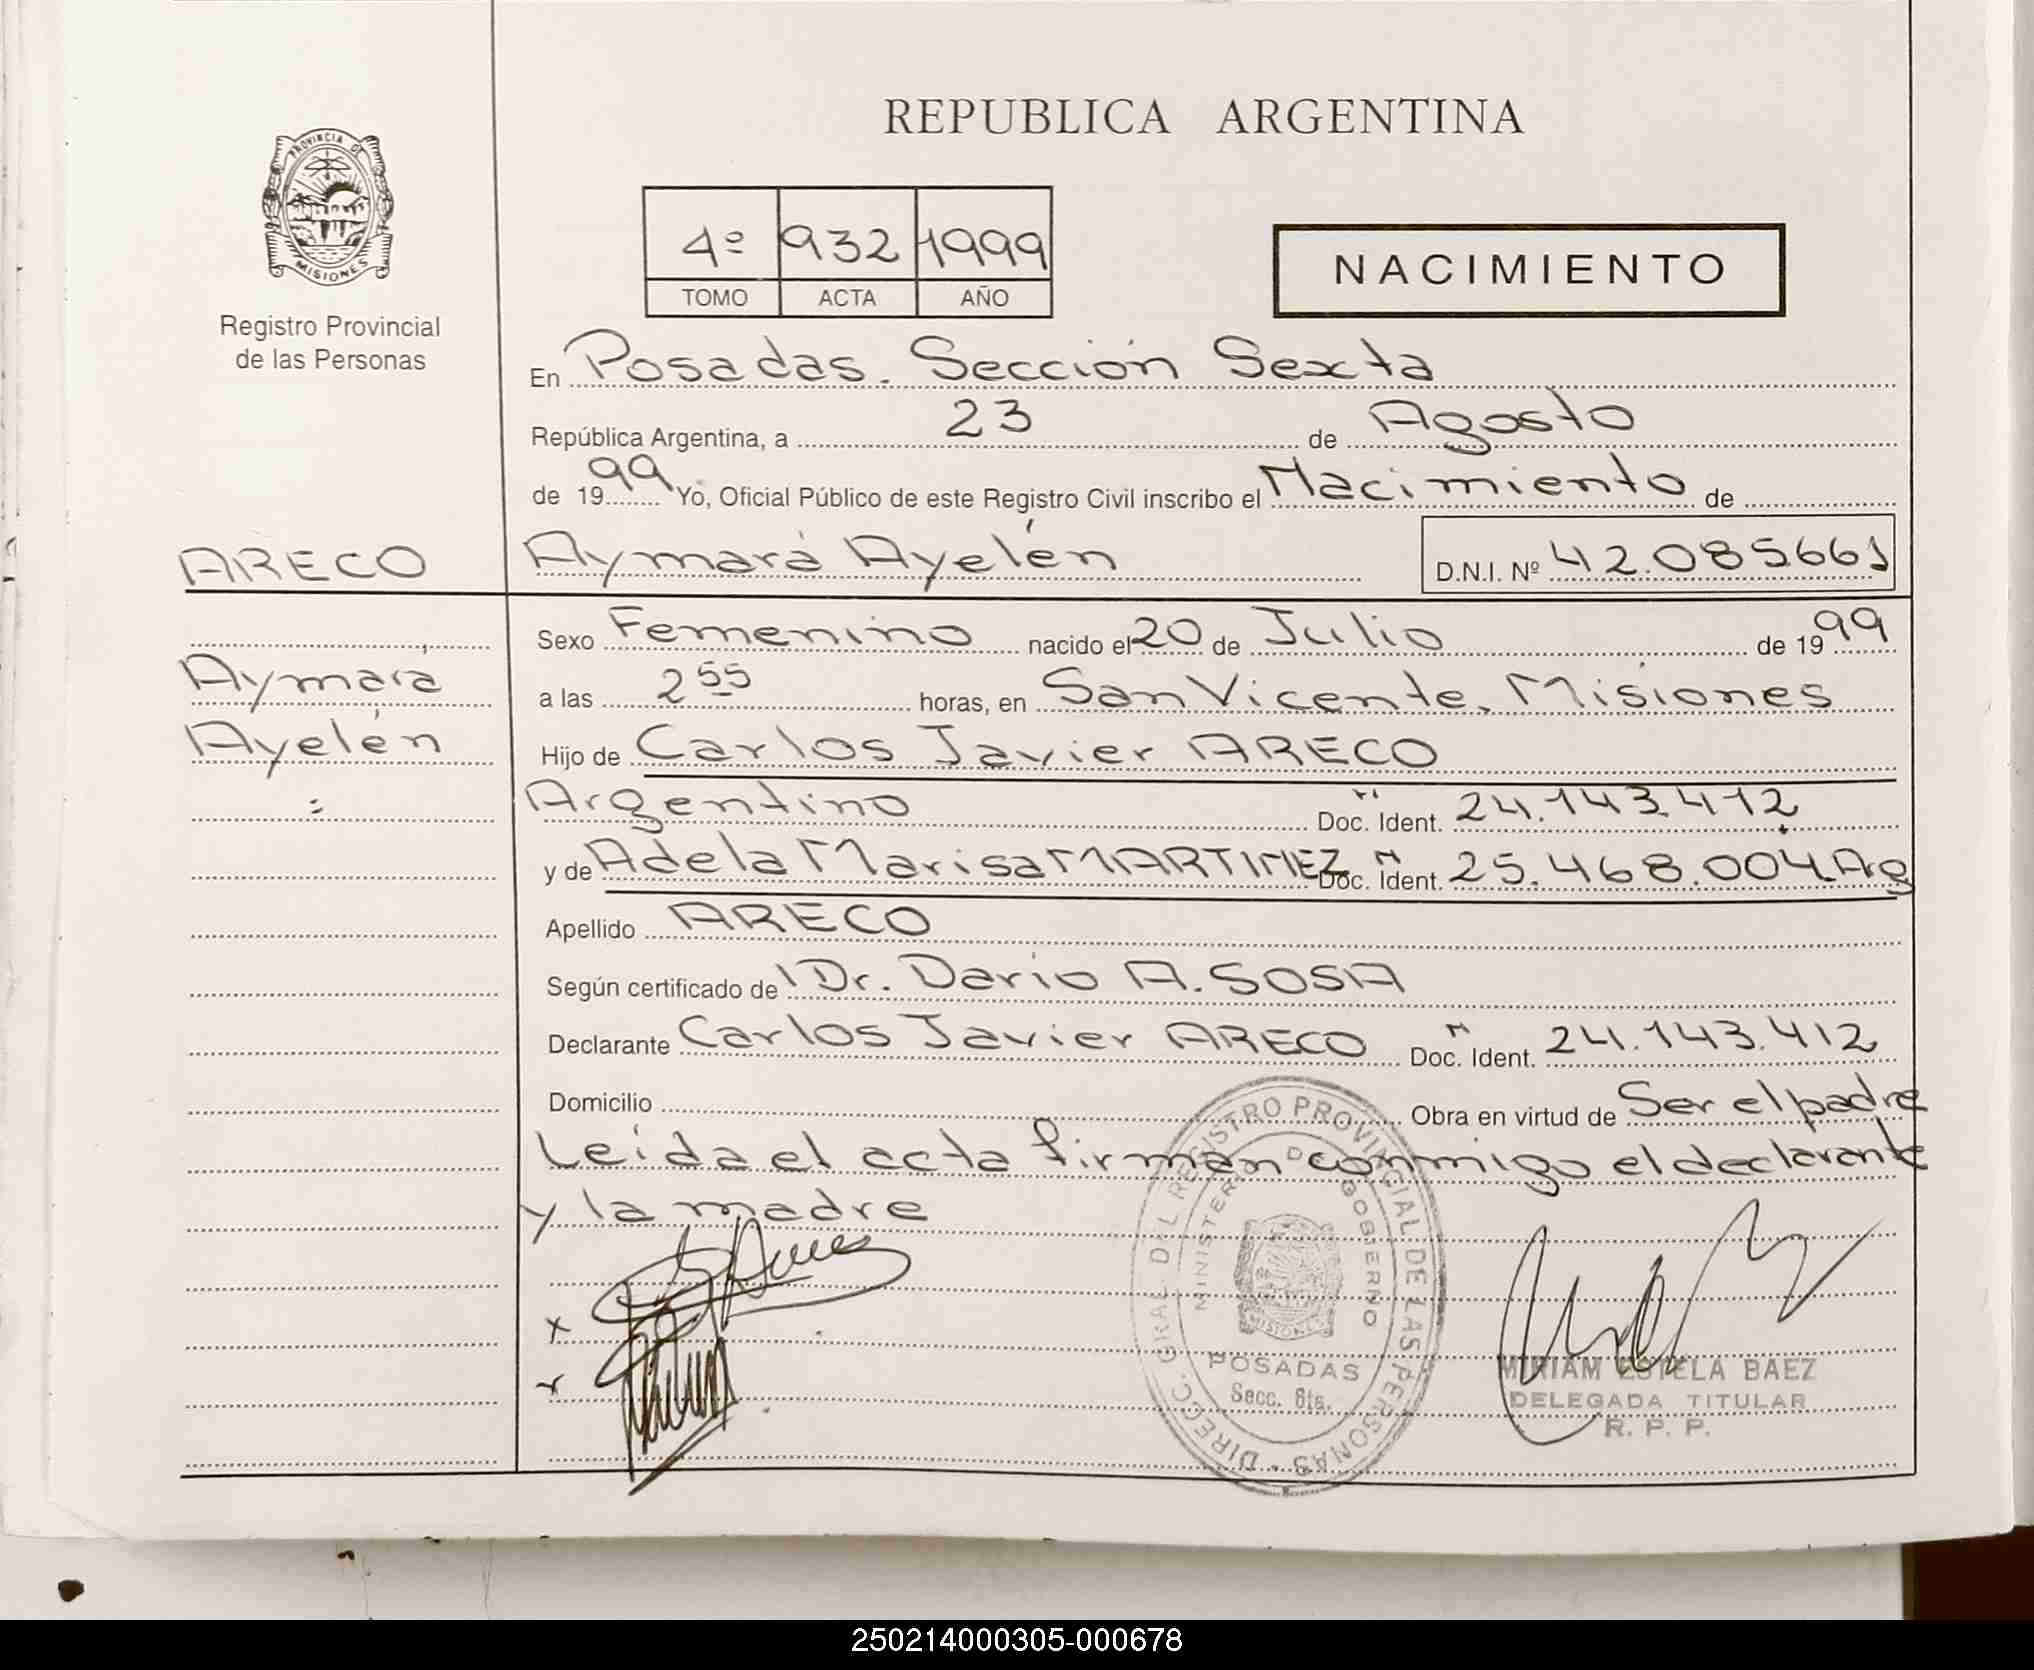 REPUBLICA ARGENTINA
PROVINCIA DE
MISIONES
Registro Provincial
de las Personas
4º 932 1999
TOMO ACTA AÑO
NACIMIENTO
En Posadas. Sección Sexta
República Argentina, a 23 de Agosto
de 1999 Yo, Oficial Público de este Registro Civil inscribo el Nacimiento de
ARECO
Aymará Ayelén D.N.I. Nº 42.085661
Sexo Femenino nacido el 20 de Julio de 1999
Aymará
a las 2 55 horas, en San Vicente, Misiones
Ayelén
Hijo de Carlos Javier ARECO
Argentino Doc. Ident. N 24.143.412
y de Adela Marisa MARTINEZ Doc. Ident. N 25.468.004 Arg
Apellido ARECO
Según certificado de Dr. Dario A. SOSA
Declarante Carlos Javier ARECO Doc. Ident. N 24.143.412
Domicilio Obra en virtud de Ser el padre
Leída el acta firman conmigo el declarante
y la madre
x
x
DIRECC. GRAL. DEL REGISTRO PROVINCIAL DE LAS PERSONAS
MINISTERIO DE GOBIERNO
MISIONES
POSADAS
Secc. 6ta.
MIRIAM ESTELA BAEZ
DELEGADA TITULAR
R. P. P.
250214000305-000678